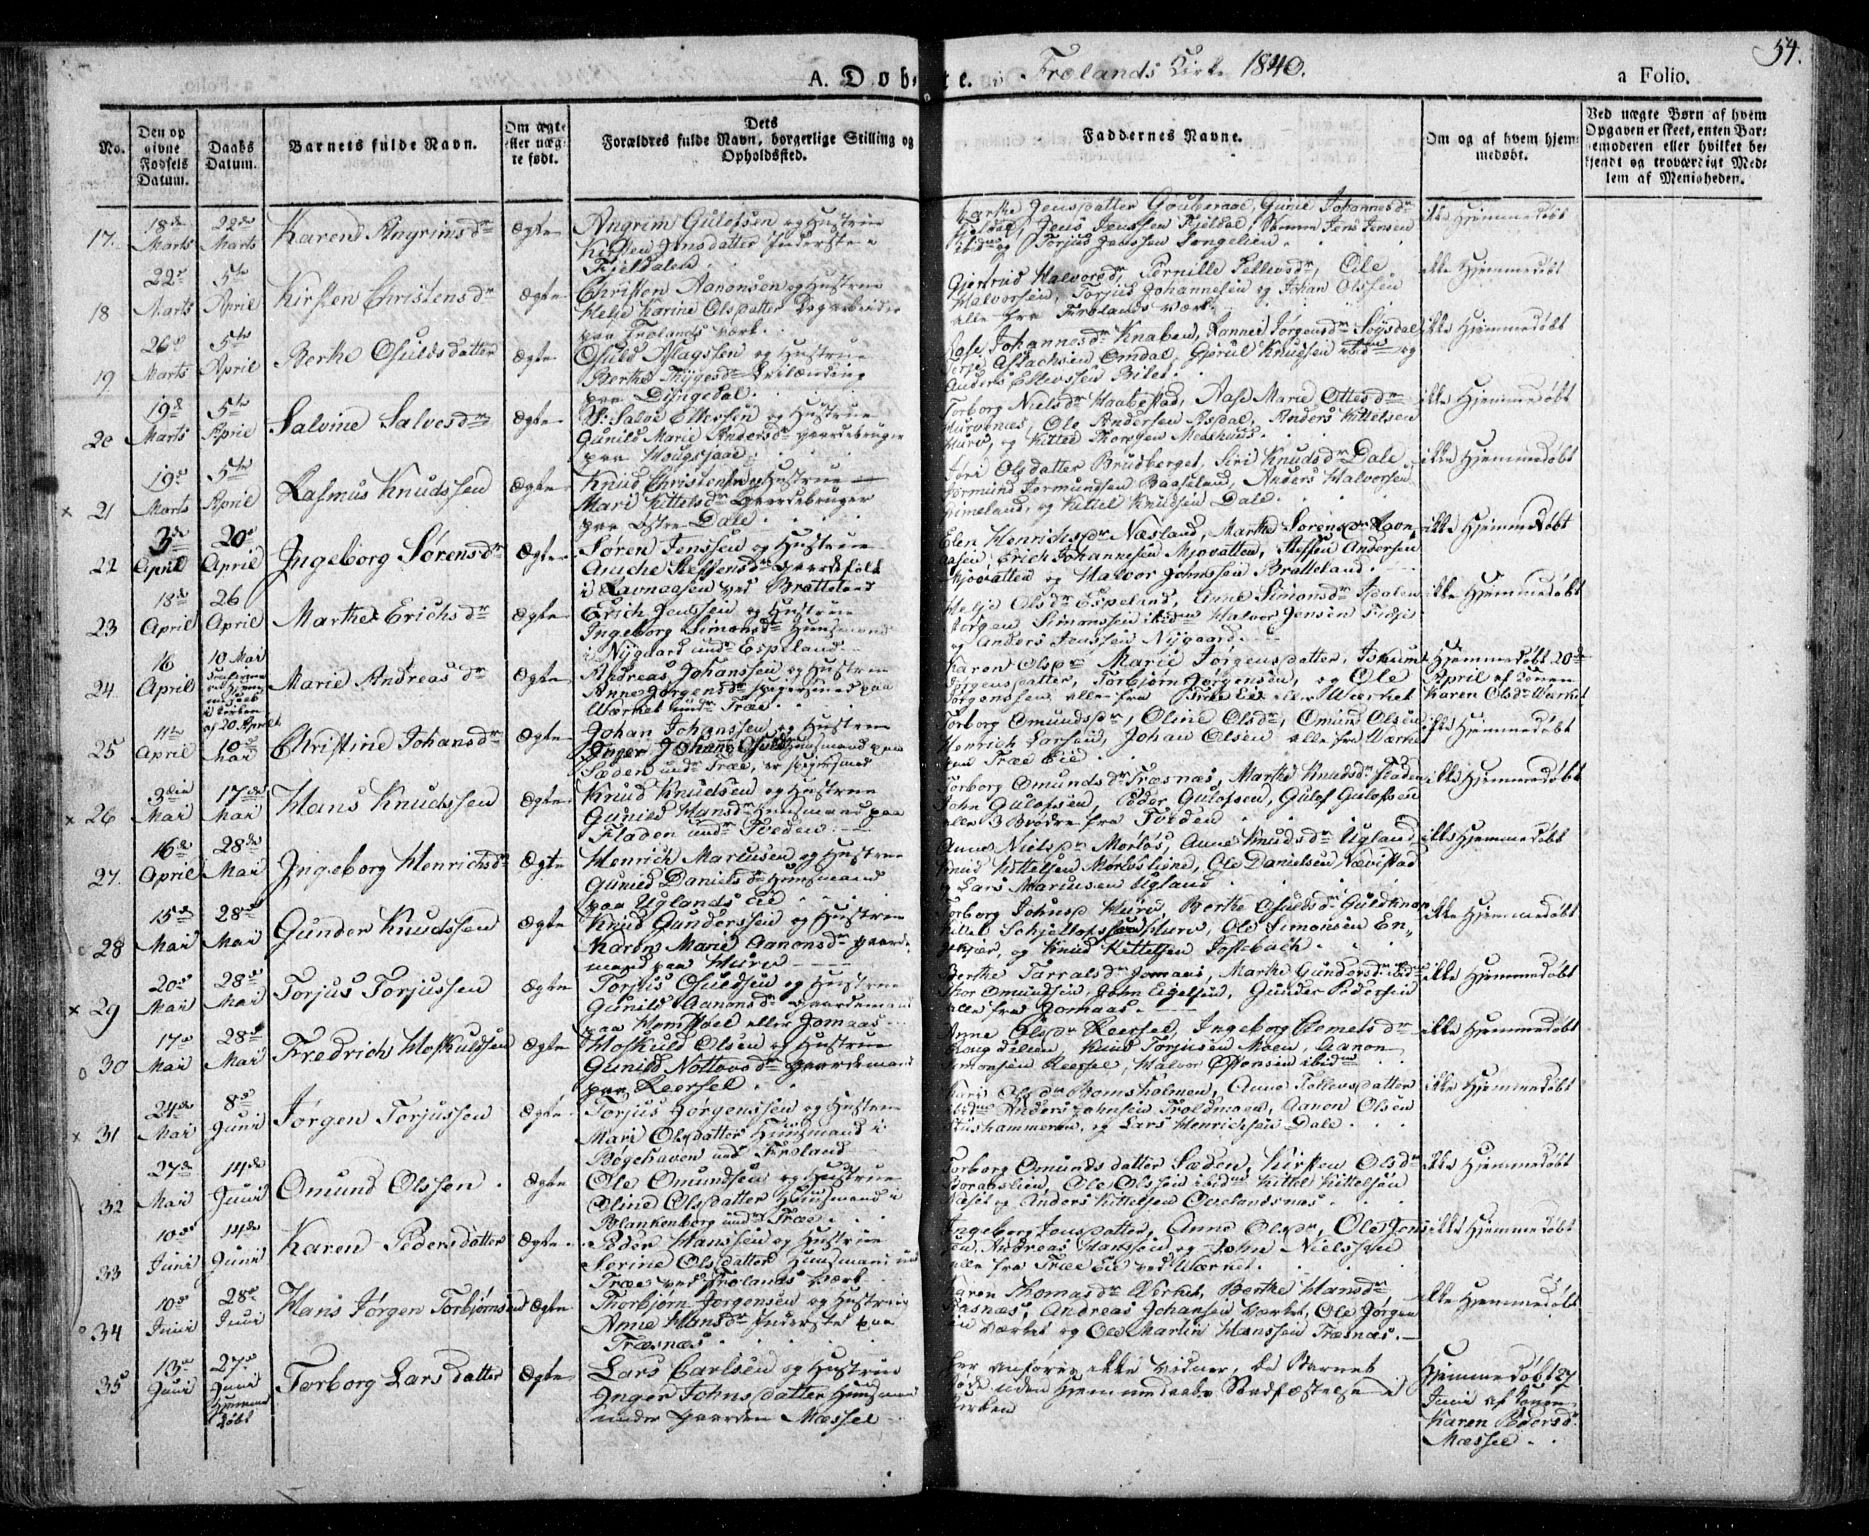 54.
A. Døbte. i Frolands Kirke 1840.
a Folio.
No.
Den op
givne
Fødsels
Datum.
Daabs
Datum.
Barnets fulde Navn.
Om ægte
eller uæg-
te født.
Dets
Forældres fulde Navn, borgerlige Stilling og
Opholdssted.
Faddernes Navne.
Om og af hvem hjem-
medøbt.
Ved uægte Børn af hvem
Opgaven er skeet, enten Bar-
nemoderen eller hvilket be-
kjendt og troværdigt Med-
lem af Menigheden.
17.
18de Marts
22de Marts
Karen Angrimsdr
Ægte
Angrim Gulofsen og Hustrue
Kirsten Jensdatter Inderste i
Fjeldalen.
Jens Jenssen Fjeldal, Jens Jensen
og Torjus Jenssen Songelien.
ikke Hjemmedøbt
18
22de Marts
5te April
Kirsten Christensdr
Ægte
Christen Aanonsen og Hustrue
Helje Karine Olsdatter Dagarbeider
paa Frolands Værk.
Gjertrud Halvorsdr, Pernille Tellevsdr, Ole
Halvorsen, Torjus Johannesen og Johan Olssen
alle fra Frolands Værk.
ikke Hjemmedøbt
19
26de Marts
5te April
Berthe Osuldsdatter
Ægte
Osuld Aslagssen og Hustrue
Berthe Thygesdr
paa Dyngedal.
Aase Johannesdr Knaben, Jørgensdr Songdal
Terje Aslachsen Omdal, Gjerul Knudsen ibidm og
Anders Ellevssen Bilet.
ikke Hjemmedøbt
20
19de Marts
5te April
Salvine Salvesdr
Ægte
S: Salve Ellevsen og Hustrue
Gunild Marie Andersdr Gaardebruger
paa Hougsjaae.
Torborg Nielsdr Haabestad, Aase Marie Ottesdr
Hurvenæs, Ole Andersen Aasdal, Anders Kittelsen
Hurv, og Kittel Thorsen Messehuus.
ikke Hjemmedøbt
21
19de Marts
5te April
Rasmus Knudssen
Ægte
Knud Christensen og Hustrue
Mari Kittelsdr Gaardebruger
paa østre Dale.
Jori Olsdatter Brudberget, Siri Knudsdr Dale
Jormund Jormundsen Baaseland, Anders Halvorsen
Heimeland, og Kittel Knudsen Dale.
ikke Hjemmedøbt
22
3de April
20de April
Ingeborg Sørensdr
Ægte
Søren Jenssen og Hustrue
Anche Steffensdr Gaardefolk
i Ravneaasen ved Bratteland
Elen Henrichsdr Næsland, Marthe Sørensdr Ravn-
aasen, Erich Johannesen Mjovatten, Steffen Andersen
Mjovatten og Halvor Johnssen Bratteland.
ikke Hjemmedøbt
23
18de April
26 April
Marthe Erichsdr
Ægte
Erich Jenssen og Hustrue
Ingeborg Simonsdr Huusmand
i Nygaard undr Espeland.
Helje Olsdr Espeland, Anne Simonsdr Fjdalen
Jørgen Simonssen ibidm Halvor Jensen
og Anders Jenssen Nygaard.
ikke Hjemmedøbt
24
16 April
10 Mai
i Kirken
af 20 April
Marie Andreasdr
Ægte
Andreas Johanssen og Hustrue
Anne Jørgensdr paa
Værket undr Træe.
Karen Olsdr Marie Jørgensdatter,
Jørgensdatter, Torbjørn Jørgensen, og Ole
Jørgenssen alle fra Træe Eie eller Værket
Hjemmedøbt 20de
April af Konen
Karen Olsdr Værket
25
11te April
10de Mai
Christine Johansdr
Ægte
Johan Johanssen og Hustrue
Huusmand paa
Sæden undr Træe,
Torborg Omundsdr, Oline Olsdr, Omund Olsen
Henrich Larsen, Johan Olsen alle fra Værket
paa Træe Eie.
ikke Hjemmedøbt
26
3die Mai
17de Mai
Hans Knudssen
Ægte
Knud Knudsen og Hustrue
Gunild Hansdr Huusmand paa
Fladen undr Tveden.
Torborg Omundsdr Træsnæs, Marthe Knudsdr Fladen
John Gulofsen, Peder Gulofsen, Gulof Gulofsen
alle 3 Brødre fra Tveden
ikke Hjemmedøbt
27.
16de April
28de Mai
Ingeborg Henrichsdr
Ægte
Henrich Mariusen og Hustrue
Gunild Danielsdr Huusmand
paa Uglands Eie
Anne Nielsdr Morløs, Anne Knudsdr Ugland,
Knud Kittelsen, Ole Danielsen Nævistad
og Lars Mariusen Ugland
ikke Hjemmedøbt
28
15de Mai
28de Mai
Gunder Knudssen
Ægte
Knud Gunderssen og Hustrue
Maren Marie Aanonsdr Gaard-
mand paa Hurv
Torborg Johnsdr Hurv, Berthe Osuldsdr Guldknap
Hurv, Ole Simonsen En-
ekjær, og Knud Kittelsen Josebach.
ikke Hjemmedøbt
29
20de Mai
28de Mai
Torjus Torjussen
Ægte
Torjus Osuldsen og Hustrue
Gunild Aanonsdr Gaardemand
paa eller Jomaas.
Berthe Tarralsdr Jomaas, Marthe Gundersdr ibidm
Thor Omundsen, John Eigelsen, Gunder Pedersen
alle fra Jomaas.
ikke Hjemmedøbt
30
17de Mai
28de Mai
Fredrich Hofkuldsen
Ægte
Hofkuld Olsen og Hustrue
Gunild Nottovsdr Gaardemand
paa Reersel.
Anne Olsdr Reersel, Ingeborg Clemetsdr
Knud Torjusen Moen, Aanon
Simonsen Reersel, Halvor Østensen ibidm
ikke Hjemmedøbt
31
24de Mai
8de Juni
Jørgen Torjussen
Ægte
Torjus Jørgenssen og Hustrue
Mari Olsdatter Huusmand i
Bøgehaven undr Froland
Kari Olsdr Bomsholmen, Anne Tellevsdatter
ibidm Anders Johnsen Troldmoen, Aanon Olsen
Stuehammeren, og Lars Henrichsen Dale.
ikke Hjemmedøbt
32
27de Mai
14de Juni
Omund Olssen.
Ægte
Ole Omundsen og Hustrue
Oline Olsdatter Huusmand i
Blankenborg undr Træe.
Torborg Omundsdatter Sæden, Kirsten Olsdr
Borabslien, Ole Olssen ibidm Kittel Kittelsen
og Anders Kittelsen Overlandsnæs.
ikke Hjemmedøbt
33
10de Juni
14de Juni
Karen Pedersdatter
Ægte
Peder Hanssen og Hustrue
Serine Olsdatter Huusmand und
Træe ved Frolands Værk
Ingeborg Jensdatter, Anne Olsdr, Ole Jens-
sen, Andreas Hanssen og John Nielssen
alle fra Træe Eie ved Værket.
ikke Hjemmedøbt
34
10de Juni
28de Juni
Hans Jørgen Torbjørnsen
Ægte
Thorbjørn Jørgensen og Hustrue
Anne Hansdr Inderste paa
Træsnæs.
Karen Thomasdr Værket, Berthe Hansdr
Træsnæs, Andreas Johansen Værket, Ole Jørgen-
sen Værket og Ole Martin Hanssen Træsnæs.
ikke Hjemmedøbt
35
13de Juni
27de Juni
Hjemme
døbt
Torborg Larsdatter
Ægte
Lars Carlsen og Hustrue
Inger Johnsdatter Huusmand
under Gaarden Mæssel
Her anføres ikke Vidner, da Barnet
døde uden Hjemmedaabs Stadfæstelse i
Kirken
Hjemmedøbt 27
Juni af Konen
Karen Pedersdr
Mæssel.